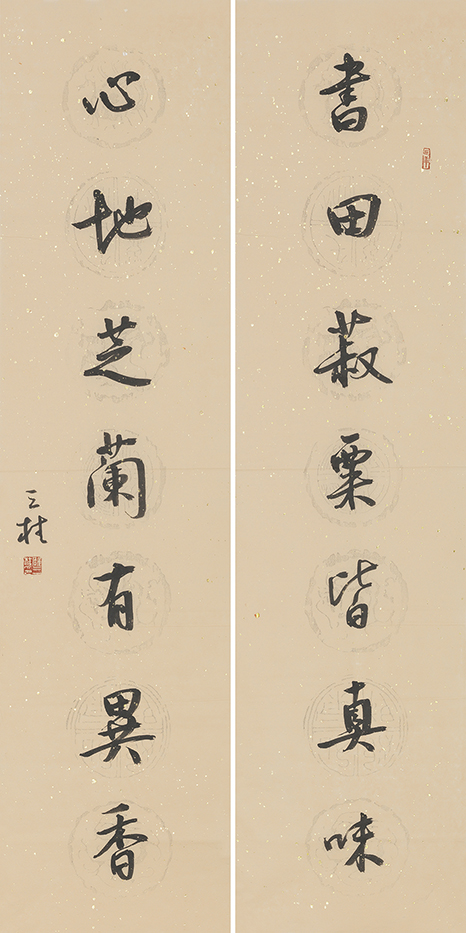 書田菽粟皆真味
心地芝蘭有異香